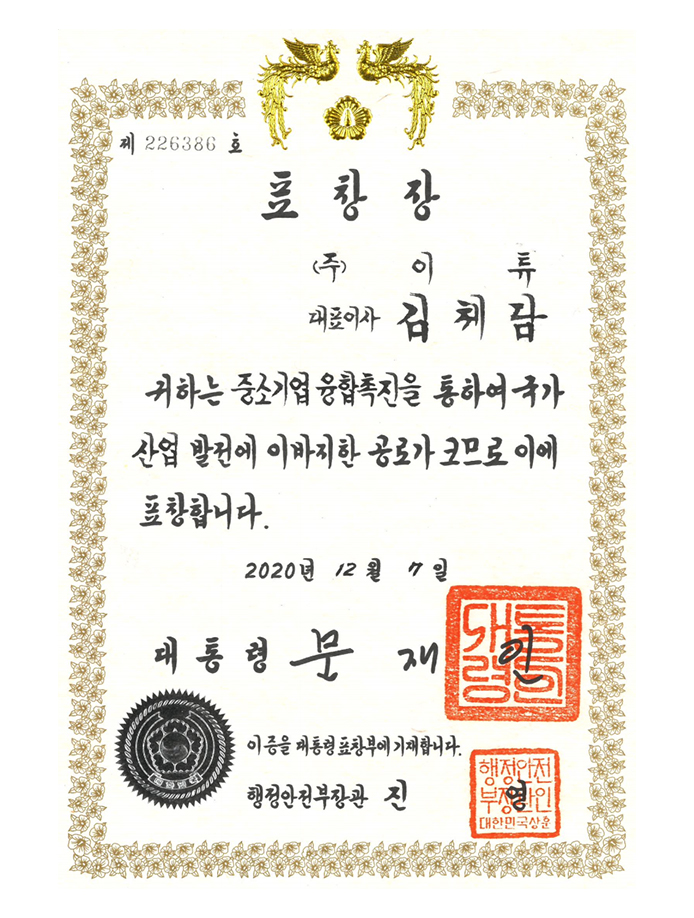 제 226386 호
표 창 장
(주) 이 튜
대표이사 김 체 담
귀하는 중소기업 융합촉진을 통하여 국가
산업 발전에 이바지한 공로가 크므로 이에
표창합니다.
2020년 12월 7일
대통령 문 재 인
대통령의인
이 증을 대통령표창부에 기재합니다.
행정안전부장관 진 영
행정안전
부장관인
대한민국상훈